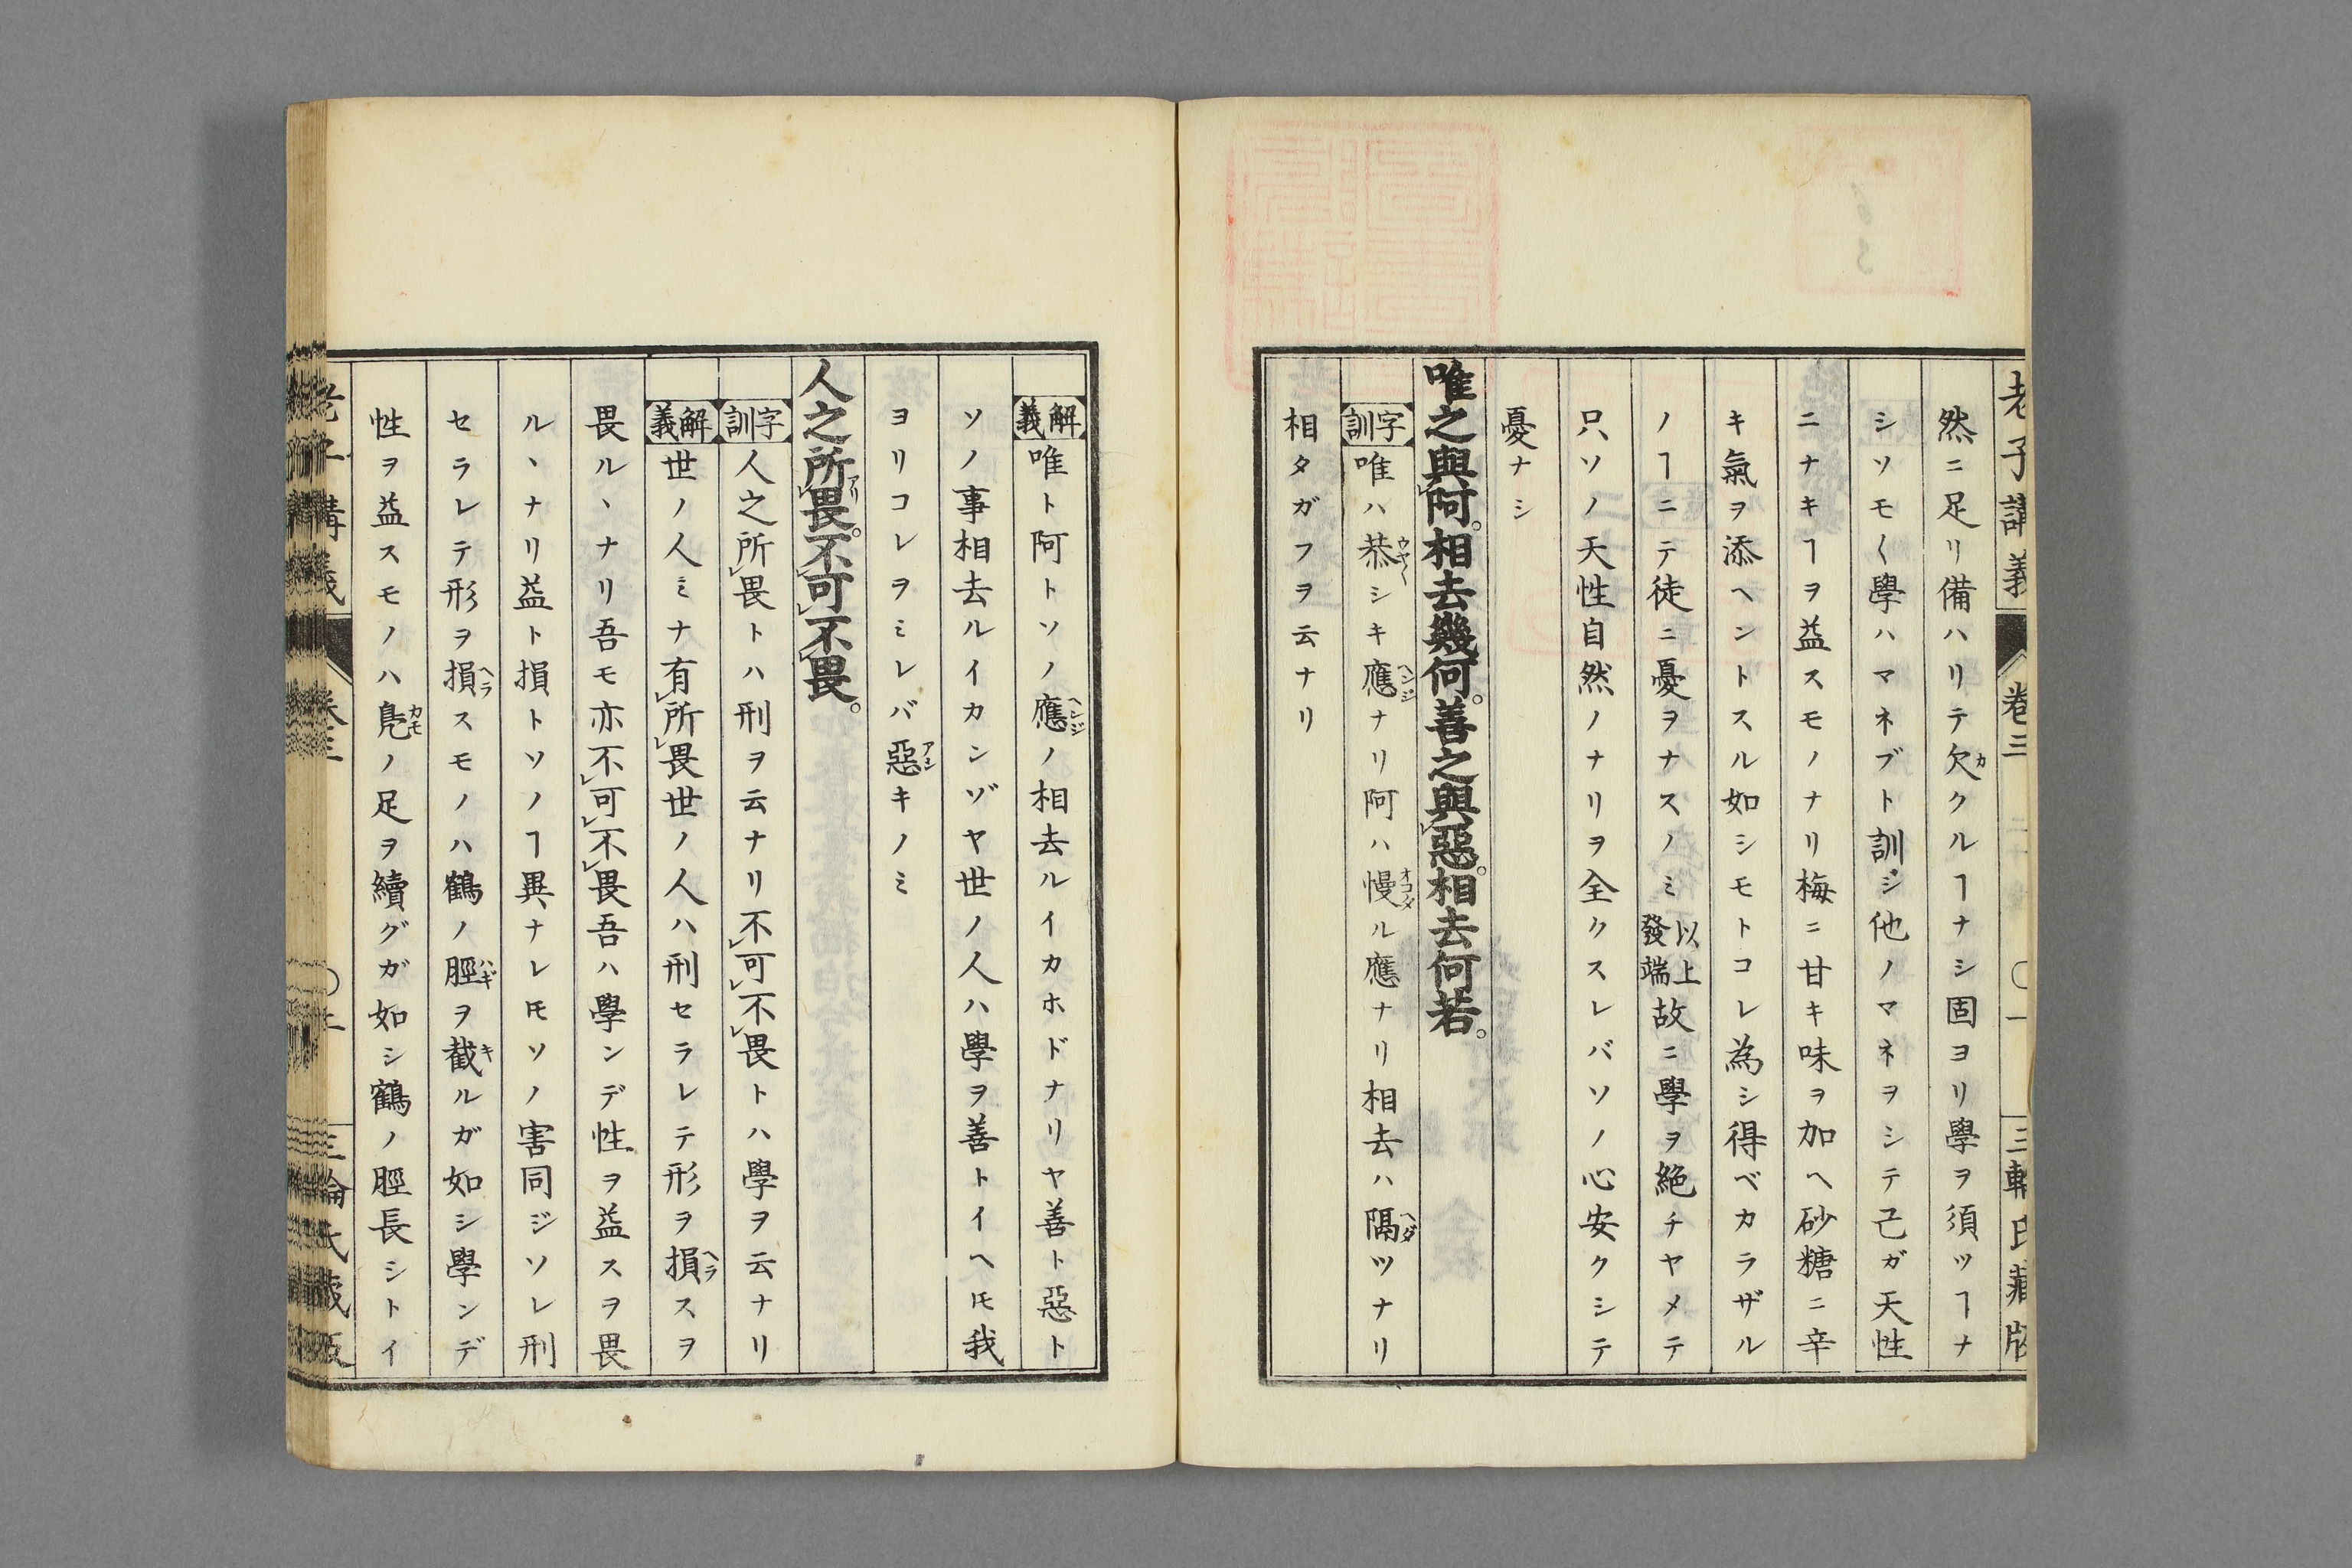 老子講義 卷三 〇一 三輪氏藏版
然ニ足リ備ハリテ欠カクルヿナシ固ヨリ學ヲ須ツヿナ
シソモ〱學ハマネブト訓ジ他ノマネヲシテ己ガ天性
ニナキヿヲ益スモノナリ梅ニ甘キ味ヲ加ヘ砂糖ニ辛
キ氣ヲ添ヘントスル如シモトコレ為シ得ベカラザル
ノヿニテ徒ニ憂ヲナスノミ以上發端故ニ學ヲ絶チヤメテ
只ソノ天性自然ノナリヲ全クスレバソノ心安クシテ
憂ナシ
唯之與レ阿。相去幾何。善之與レ惡。相去何若。
字訓 唯ハ恭ウヤ〱シキ應ヘンジナリ阿ハ慢オコタル應ナリ相去ハ隔ヘダツナリ
相タガフヲ云ナリ
解義 唯ト阿トソノ應ヘンジノ相去ルイカホドナリヤ善ト惡ト
ソノ事相去ルイカンゾヤ世ノ人ハ學ヲ善トイヘ𪜈我
ヨリコレヲミレバ惡アシキノミ
人之所アリレ畏。不レ可レ不レ畏。
字訓 人之所レ畏トハ刑ヲ云ナリ不レ可レ不レ畏トハ學ヲ云ナリ
解義 世ノ人ミナ有レ所レ畏世ノ人ハ刑セラレテ形ヲ損ヘラスヲ
畏ルヽナリ吾モ亦不レ可レ不レ畏吾ハ學ンデ性ヲ益スヲ畏
ルヽナリ益ト損トソノヿ異ナレ𪜈ソノ害同ジソレ刑
セラレテ形ヲ損ヘラスモノハ鶴ノ脛ハギヲ截キルガ如シ學ンデ
性ヲ益スモノハ鳧カモノ足ヲ續グガ如シ鶴ノ脛長シトイ